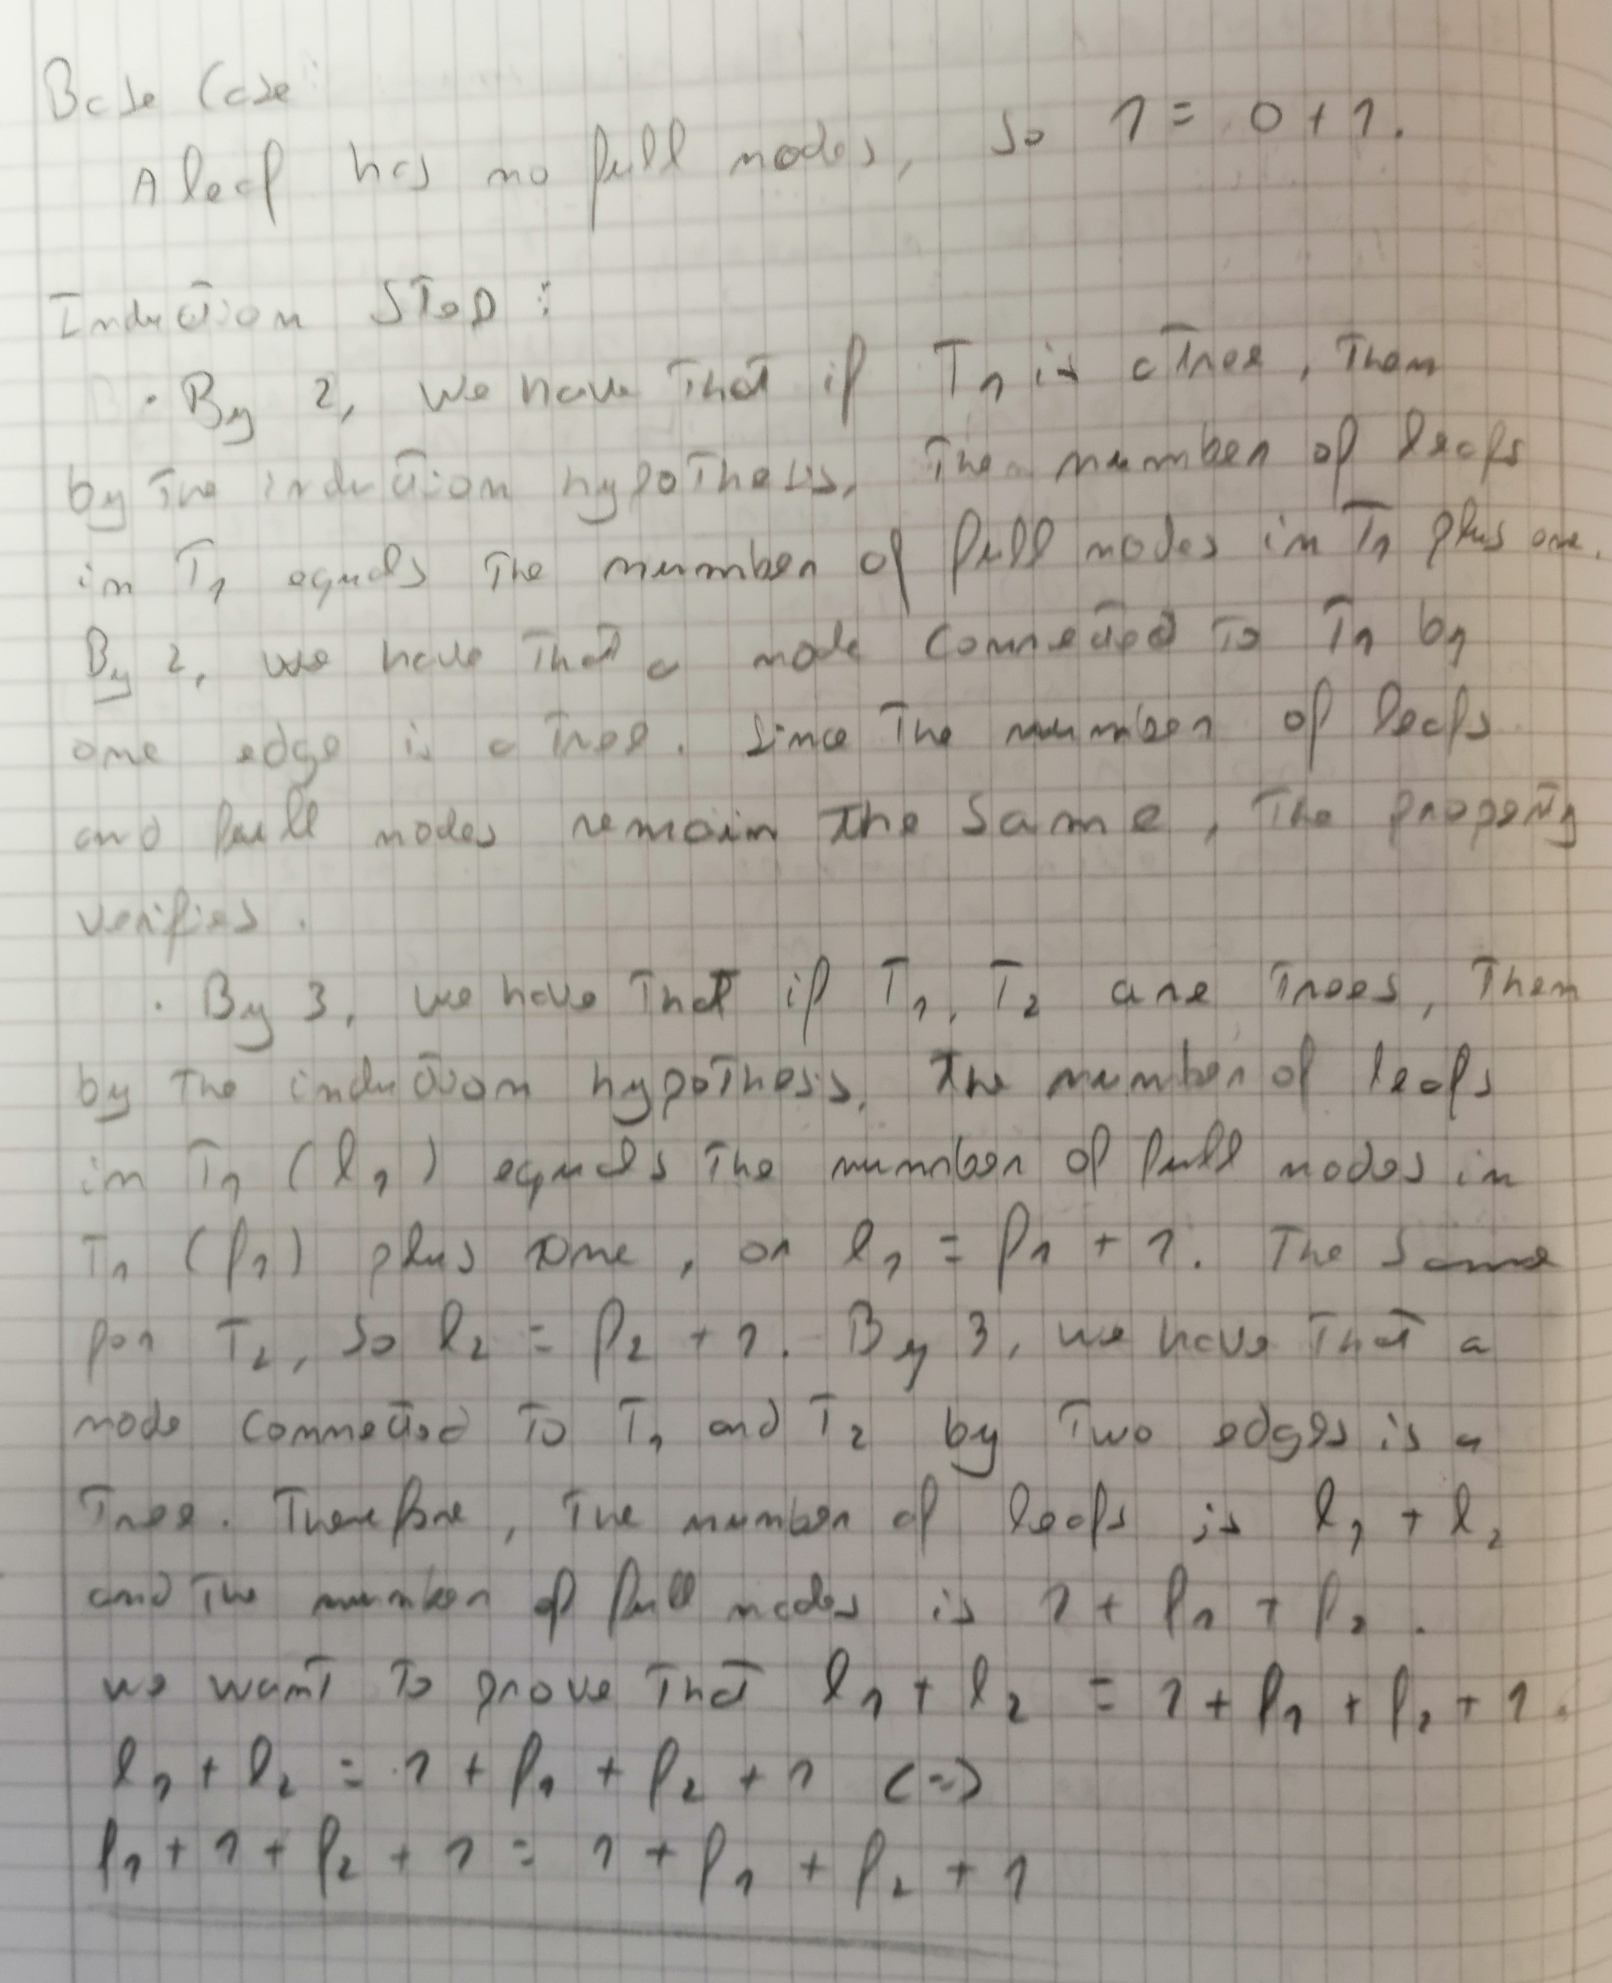 Base Case:
A leaf has no full nodes, so 1 = 0 + 1.
Induction Step:
· By 2, we have that if T1 is a tree, then
by the induction hypothesis, the number of leafs
in T1 equals the number of full nodes in T1 plus one.
By 2, we have that a node connected to T1 by
one edge is a tree. Since the number of leafs
and full nodes remain the same, the property
verifies.
· By 3, we have that if T1, T2 are trees, then
by the induction hypothesis, the number of leafs
in T1 (l1) equals the number of full nodes in
T1 (f1) plus one, or l1 = f1 + 1. The same
for T2, so l2 = f2 + 1. By 3, we have that a
node connected to T1 and T2 by two edges is a
tree. Therefore, the number of leafs is l1 + l2
and the number of full nodes is 1 + f1 + f2.
we want to prove that l1 + l2 = 1 + f1 + f2 + 1.
l1 + l2 = 1 + f1 + f2 + 1 (=)
f1 + 1 + f2 + 1 = 1 + f1 + f2 + 1